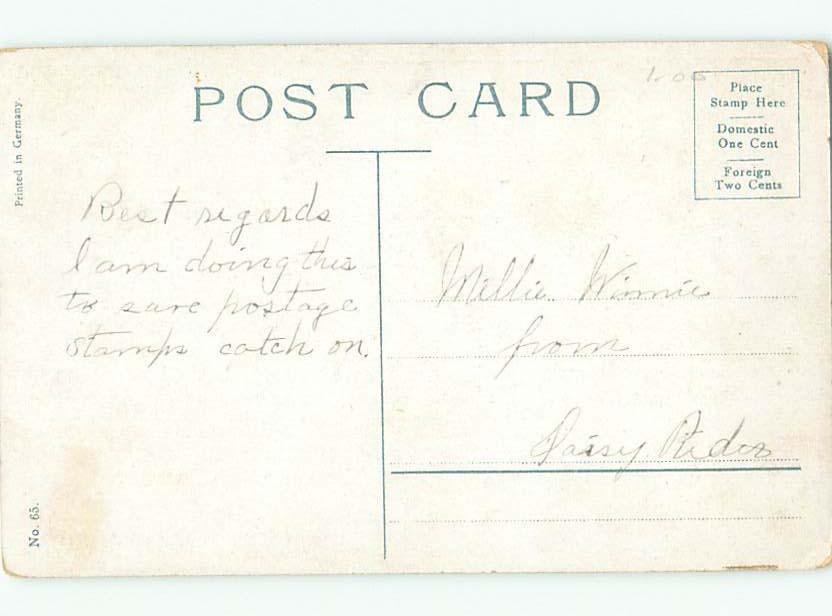 POST CARD
1.00
Place
Stamp Here
Domestic
One Cent
Foreign
Two Cents
Printed in Germany.
Best regards
I am doing this
to save postage
stamps catch on.
Millie Winnie
from
Daisy Rider
No. 65.